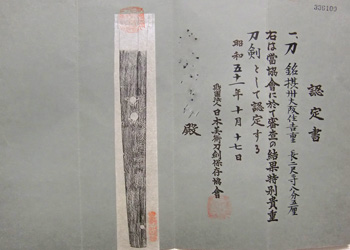 認定書
一、刀 銘 摂州大阪住吉重 長二尺寸八分五厘
右は當協會に於て審査の結果特別貴重
刀剣として認定する
昭和五十一年十月十七日
財團法人日本美術刀剣保存協會
殿